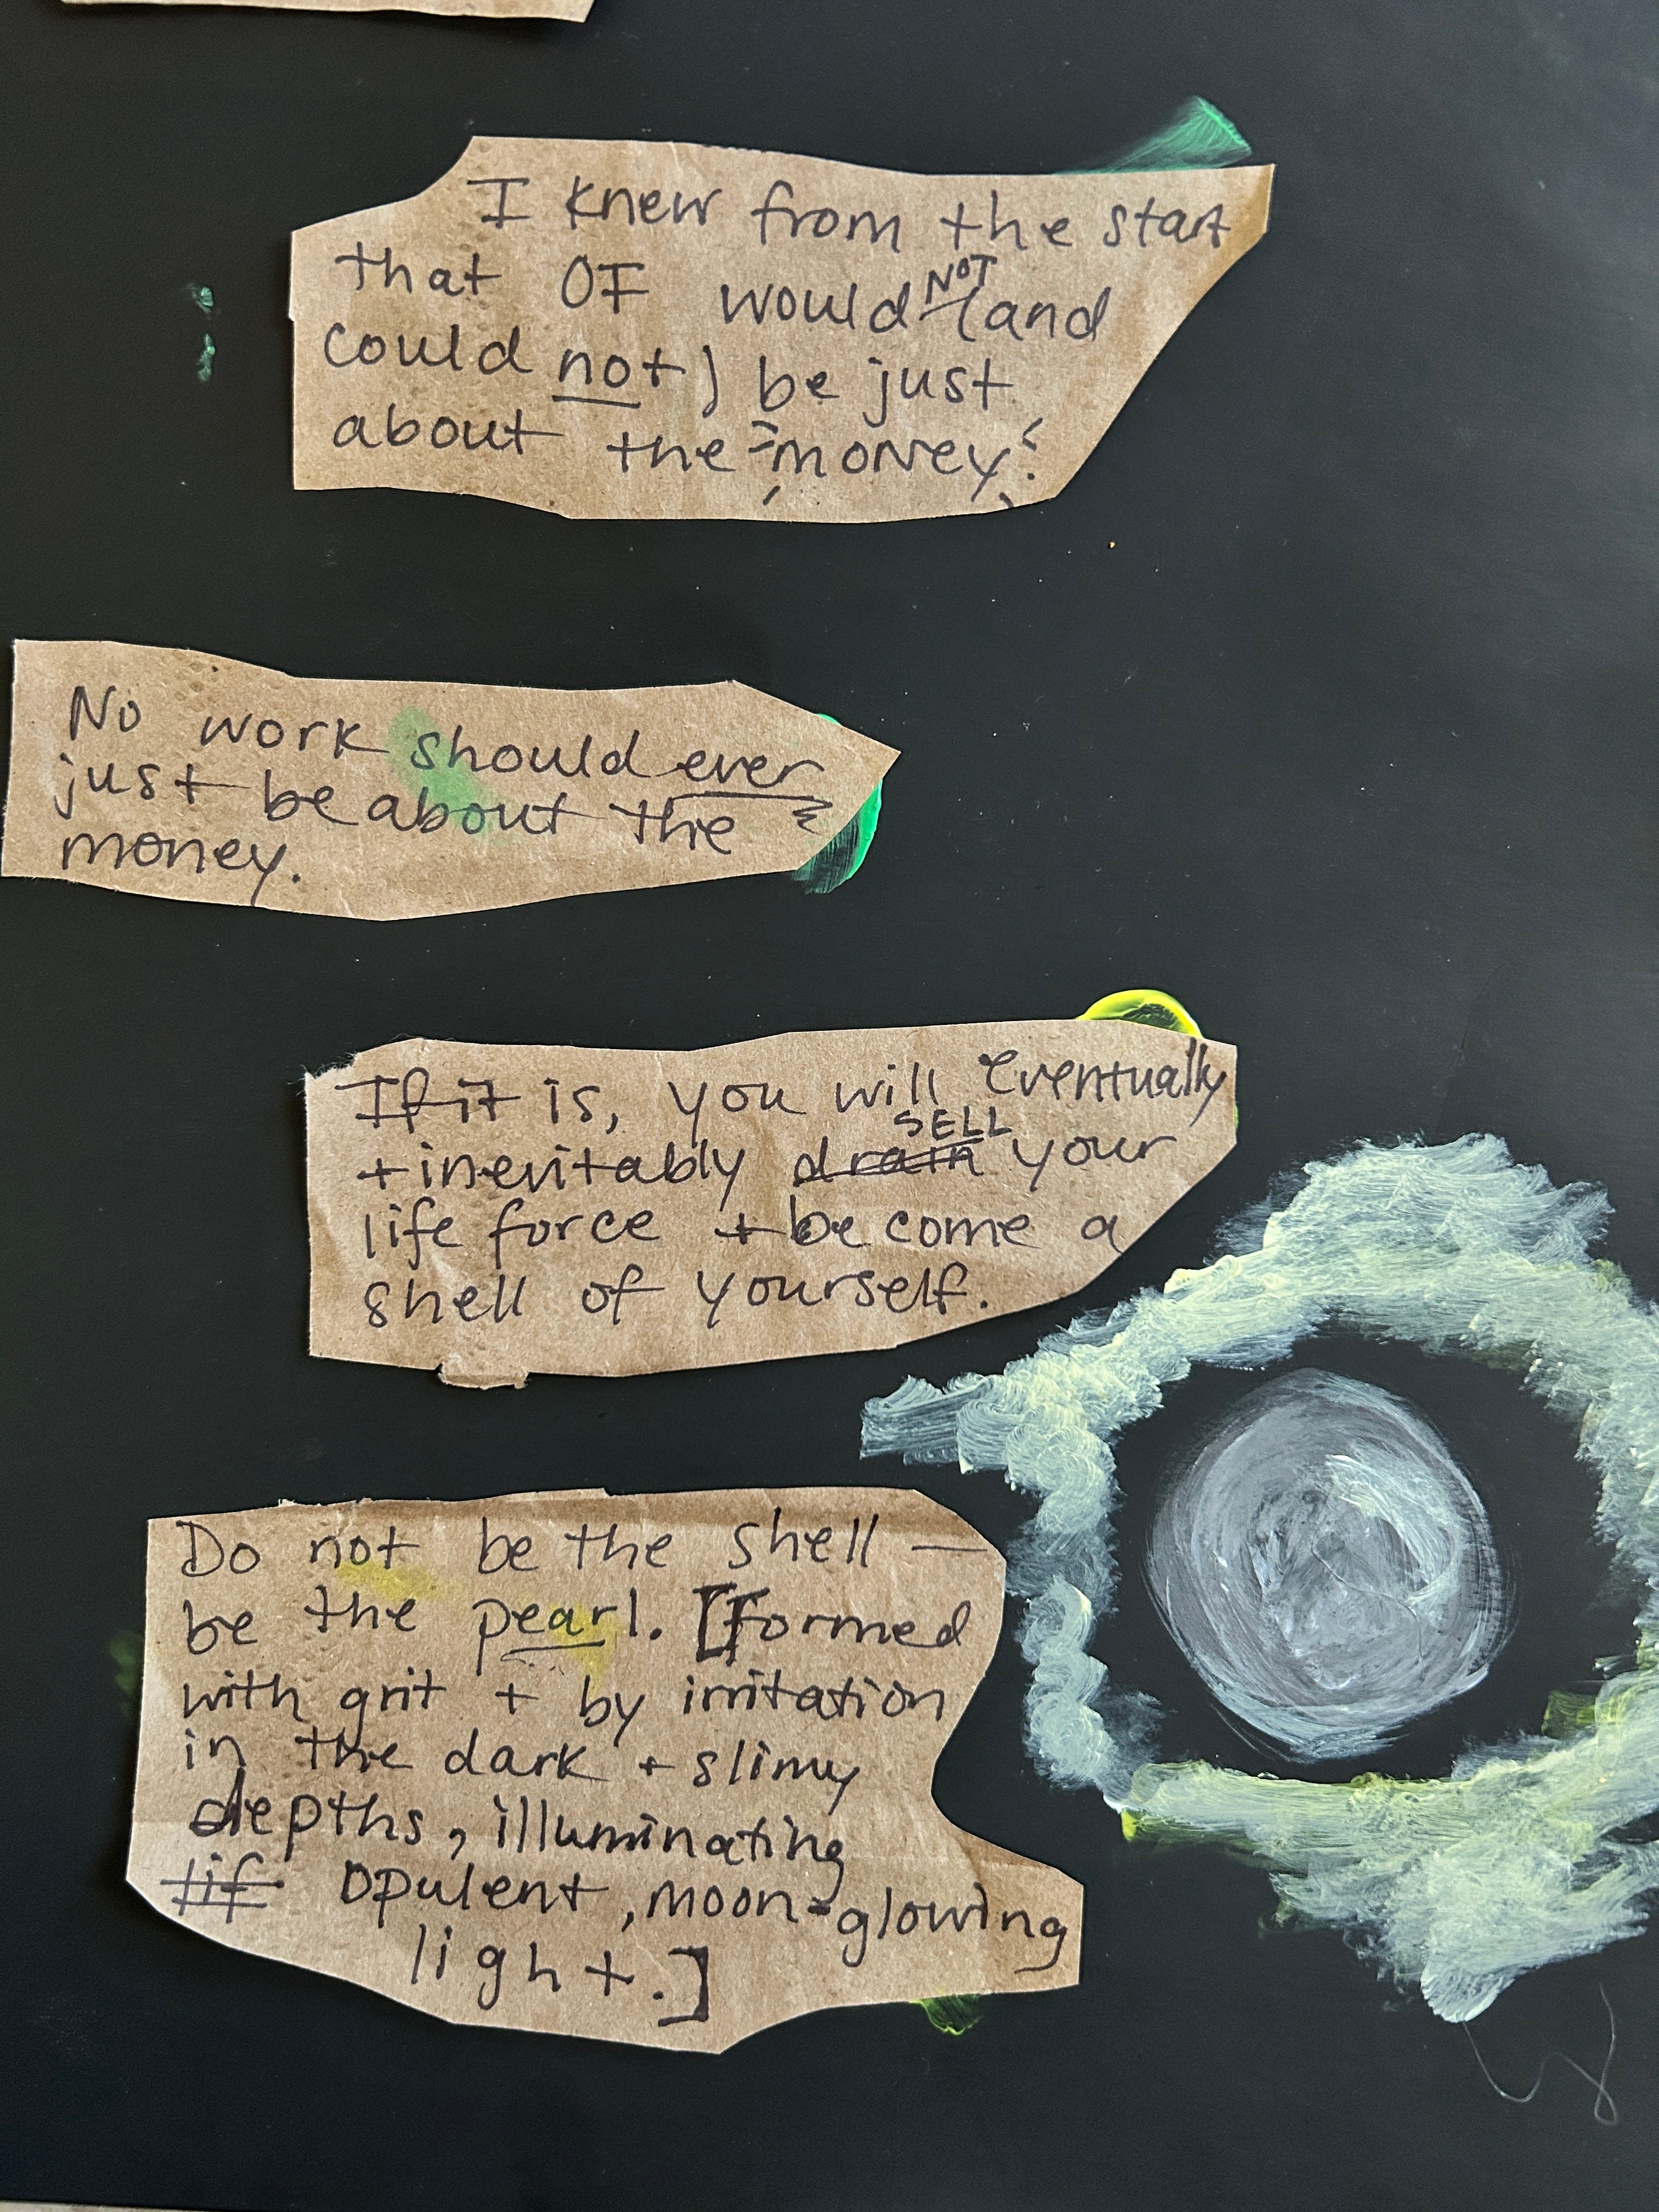 I knew from the start
that OF would NOT (and
could not) be just
about the money.
No work should ever
just be about the
money.
If it is, you will eventually
+ inevitably drain SELL your
life force + become a
shell of yourself.
Do not be the shell —
be the pearl. [Formed
with grit + by irritation
in the dark + slimy
depths, illuminating
opulent, moon-glowing
light.]